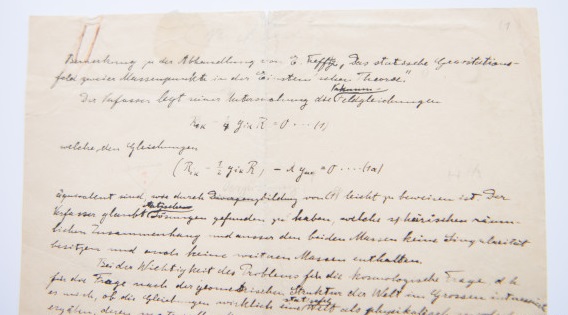 Bemerkung zu der Abhandlung von E. Trefftz „Das statische Gravitations-
feld zweier Massenpunkte in der Einstein'schen Theorie"
Der Verfasser legt seiner Untersuchung die Vakuum-
Feldgleichungen
R_ik - 1/4 g_ik R = 0 .... (1)
welche den Gleichungen
(R_ik - 1/2 g_ik R) - λ g_ik = 0 .... (1a)
äquivalent sind, wie durch Divergenzbildung von (1) leicht zu beweisen ist. Der
Verfasser glaubt statische Lösungen gefunden zu haben, welche sphärischen räum-
lichen Zusammenhang und ausser den beiden Massen keine Singularität
besitzen und auch keine weiteren Massen enthalten.
Bei der Wichtigkeit des Problems für die kosmologische Frage d. h.
für die Frage nach der geometrischen Struktur der Welt im Grossen interessierte
es mich, ob die Gleichungen wirklich eine statische Welt als physikalisch